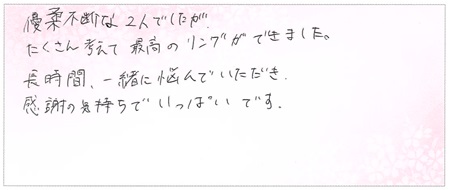 優柔不断な2人でしたが、
たくさん考えて最高のリングができました。
長時間、一緒に悩んでいただき、
感謝の気持ちでいっぱいです。